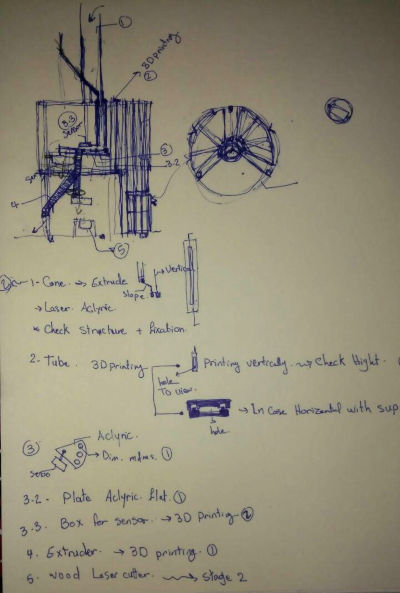 ①
3D printing
②
3.3
Sensor
③
3.2
4
⑤
1- Cone → Extrude
Vertical
Slope
→ Laser Aclyric
* Check Structure + fixation
2- Tube. 3D printing
Printing vertically → Check Hight.
hole
To view.
→ In Case Horizental with sup
hole
③ Aclyric.
Servo
→ Dim. ①
3.2 - Plate Aclyric flat. ①
3.3. Box for sensor. → 3D Printing ②
4. Extruder. → 3D printing. ①
5. wood Laser cutter. → Stage 2